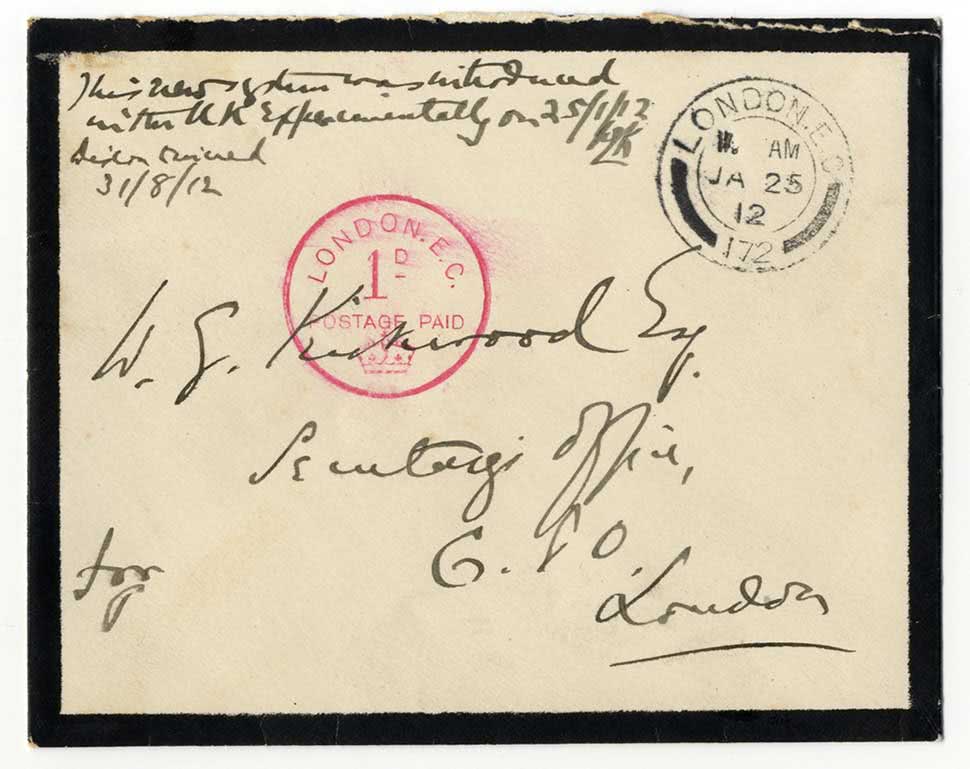 This new system was introduced
in the UK Experimentally on 25/1/12
31/8/12
LONDON. E.C
AM
JA 25
12
172
LONDON. E.C.
1D
POSTAGE PAID
W. G. Kirkwood Esq.
Secretary's Office,
G. P. O.
London